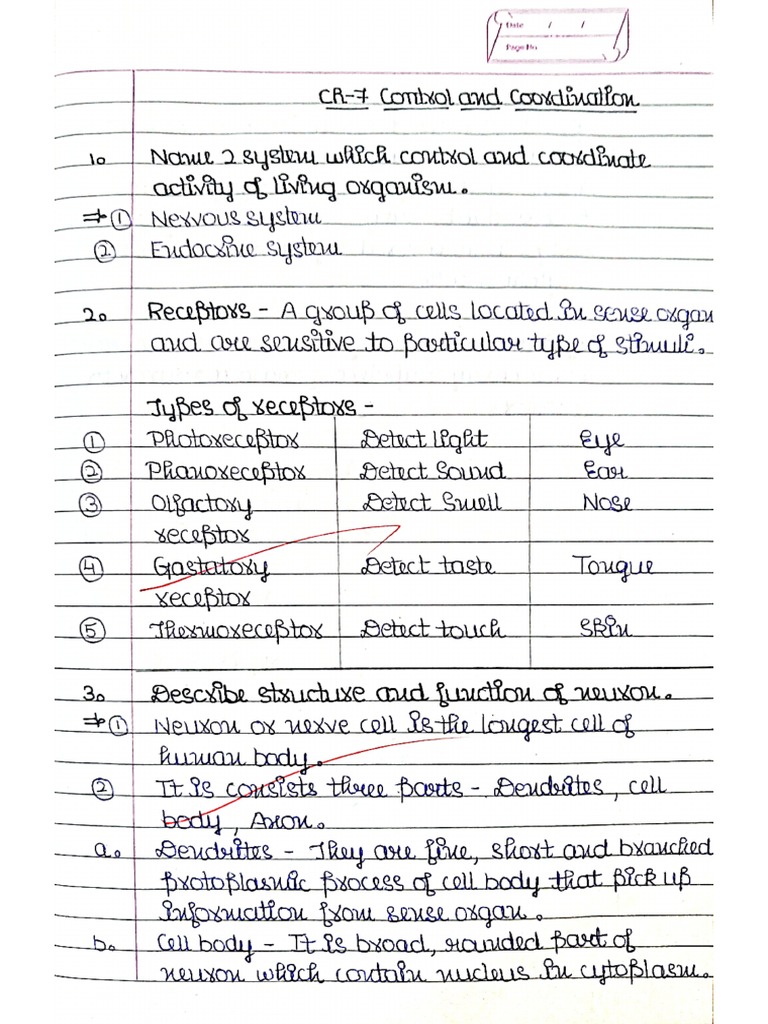 Date / /
Page No.
CH-7 Control and Coordination
1. Name 2 system which control and coordinate
activity of living organism.
⇒ ① Nervous system
② Endocrine system
2. Receptors - A group of cells located in sense organ
and are sensitive to particular type of stimuli.
Types of receptors -
① Photoreceptor Detect light Eye
② Phanoreceptor Detect Sound Ear
③ Olfactory Detect Smell Nose
receptor
④ Gastatory Detect taste Tongue
receptor
⑤ Thermoreceptor Detect touch Skin
3. Describe structure and function of neuron.
⇒ ① Neuron or nerve cell is the longest cell of
human body.
② It is consists three parts - Dendrites, cell
body, Axon.
a. Dendrites - They are fine, short and branched
protoplasmic process of cell body that pick up
information from sense organ.
b. Cell body - It is broad, rounded part of
neuron which contain nucleus in cytoplasm.